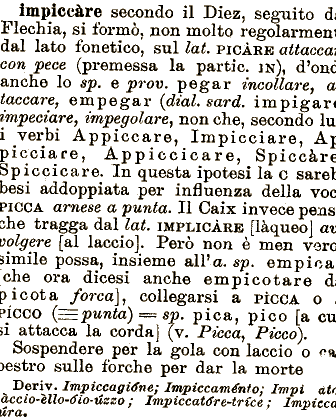 impiccàre secondo il Diez, seguito da
Flechia, si formò, non molto regolarment
dal lato fonetico, sul lat. PICÀRE attacca
con pece (premessa la partic. IN), d'ond
anche lo sp. e prov. pegar incollare, a
taccare, empegar (dial. sard. impigar
impeciare, impegolare, non che, secondo lu
i verbi Appiccare, Impicciare, Ap
picciare, Appiccicare, Spiccàre
Spiccicare. In questa ipotesi la c sareb
besi addoppiata per influenza della voc
PICCA arnese a punta. Il Caix invece pens
che tragga dal lat. IMPLICÀRE [làqueo] av
volgere [al laccio]. Però non è men vero
simile possa, insieme all'a. sp. empica
[che ora dicesi anche empicotare d
picota forca], collegarsi a PICCA o
PICCO (≡ punta) = sp. pica, pico [a cu
si attacca la corda] (v. Picca, Picco).
Sospendere per la gola con laccio o
pestro sulle forche per dar la morte
Deriv. Impiccagióne; Impiccaménto; Impi
àccio-èllo-óio-úzzo; Impiccatóre-tríce; Impicca
úra.